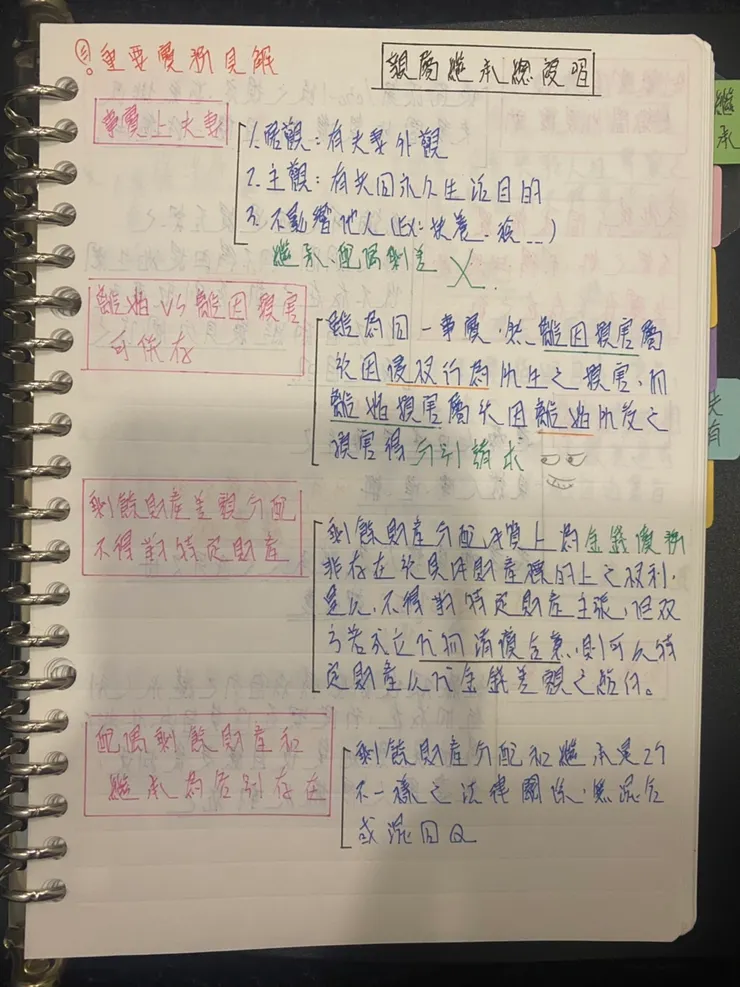 重要實務見解
親屬繼承總複習
繼承
事實上夫妻
1. 客觀：有夫妻外觀
2. 主觀：有共同永久生活目的
3. 不影響他人（EX：扶養、…）
繼承、配偶剩差 X
離婚 VS 離因損害
可併存
離為同一事實，然離因損害屬
於因侵權行為所生之損害，而
離婚損害屬於因離婚所致之
損害得分別請求
剩餘財產差額分配
不得對特定財產
剩餘財產分配，性質上為金錢債務
非存在於具體財產標的上之權利，
是以，不得對特定財產主張，但双
方若成立代物清償合意，則可以特
定財產以代金錢差額之給付。
配偶剩餘財產和
繼承為各別存在
剩餘財產分配和繼承是2個
不一樣之法律關係，無混合
或混同Q